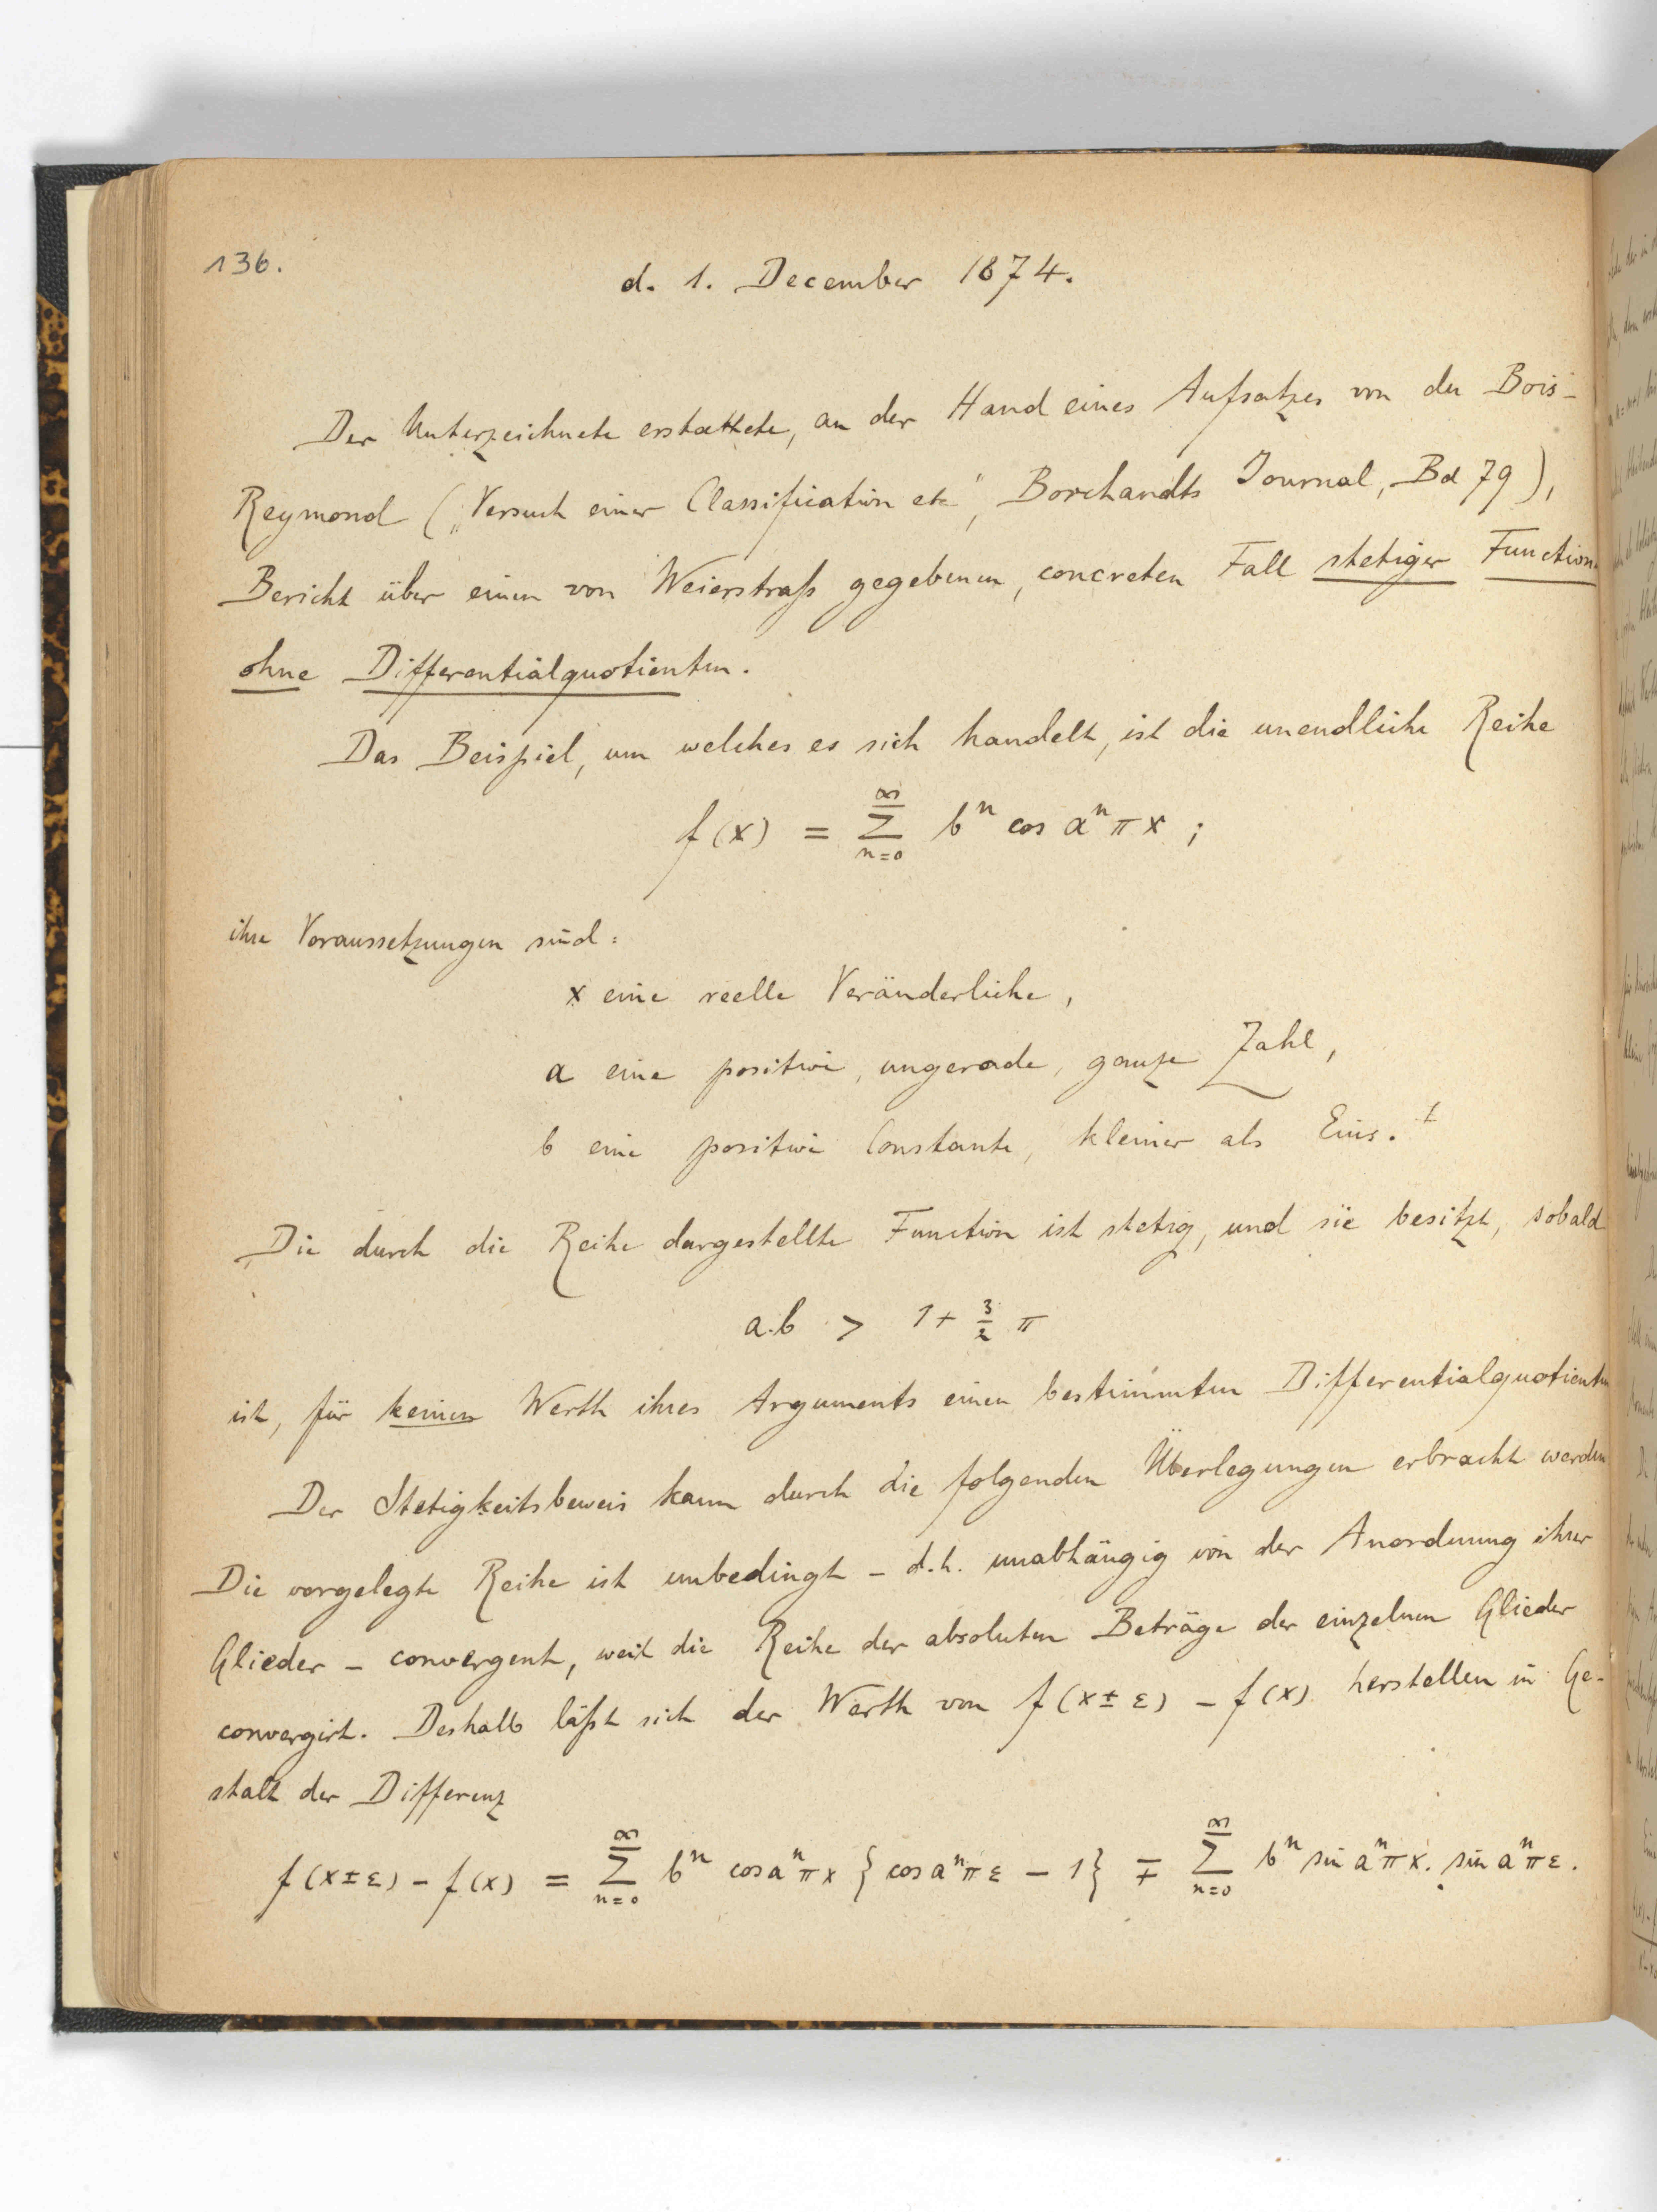 136.
d. 1. December 1874.
Der Unterzeichnete erstattete, an der Hand eines Aufsatzes von du Bois-
Reymond („Versuch einer Classification etc“, Borchardts Journal, Bd 79),
Bericht über einen von Weierstraß gegebenen, concreten Fall stetiger Function
ohne Differentialquotienten.
Das Beispiel, um welches es sich handelt, ist die unendliche Reihe
f(x) = ∑_{n=0}^{∞} b^n cos a^n π x ;
ihre Voraussetzungen sind:
x eine reelle Veränderliche,
a eine positive, ungerade, ganze Zahl,
b eine positive Constante, kleiner als Eins.
„Die durch die Reihe dargestellte Function ist stetig, und sie besitzt, sobald
a.b > 1 + 3/2 π
ist, für keinen Werth ihres Arguments einen bestimmten Differentialquotienten
Der Stetigkeitsbeweis kann durch die folgenden Überlegungen erbracht werden
Die vorgelegte Reihe ist unbedingt – d.h. unabhängig von der Anordnung ihrer
Glieder – convergent, weil die Reihe der absoluten Beträge der einzelnen Glieder
convergirt. Deshalb läßt sich der Werth von f(x±ε) – f(x) herstellen in Ge-
stalt der Differenz
f(x±ε) – f(x) = ∑_{n=0}^{∞} b^n cos a^n π x {cos a^n π ε – 1} ∓ ∑_{n=0}^{∞} b^n sin a^n π x . sin a^n π ε.